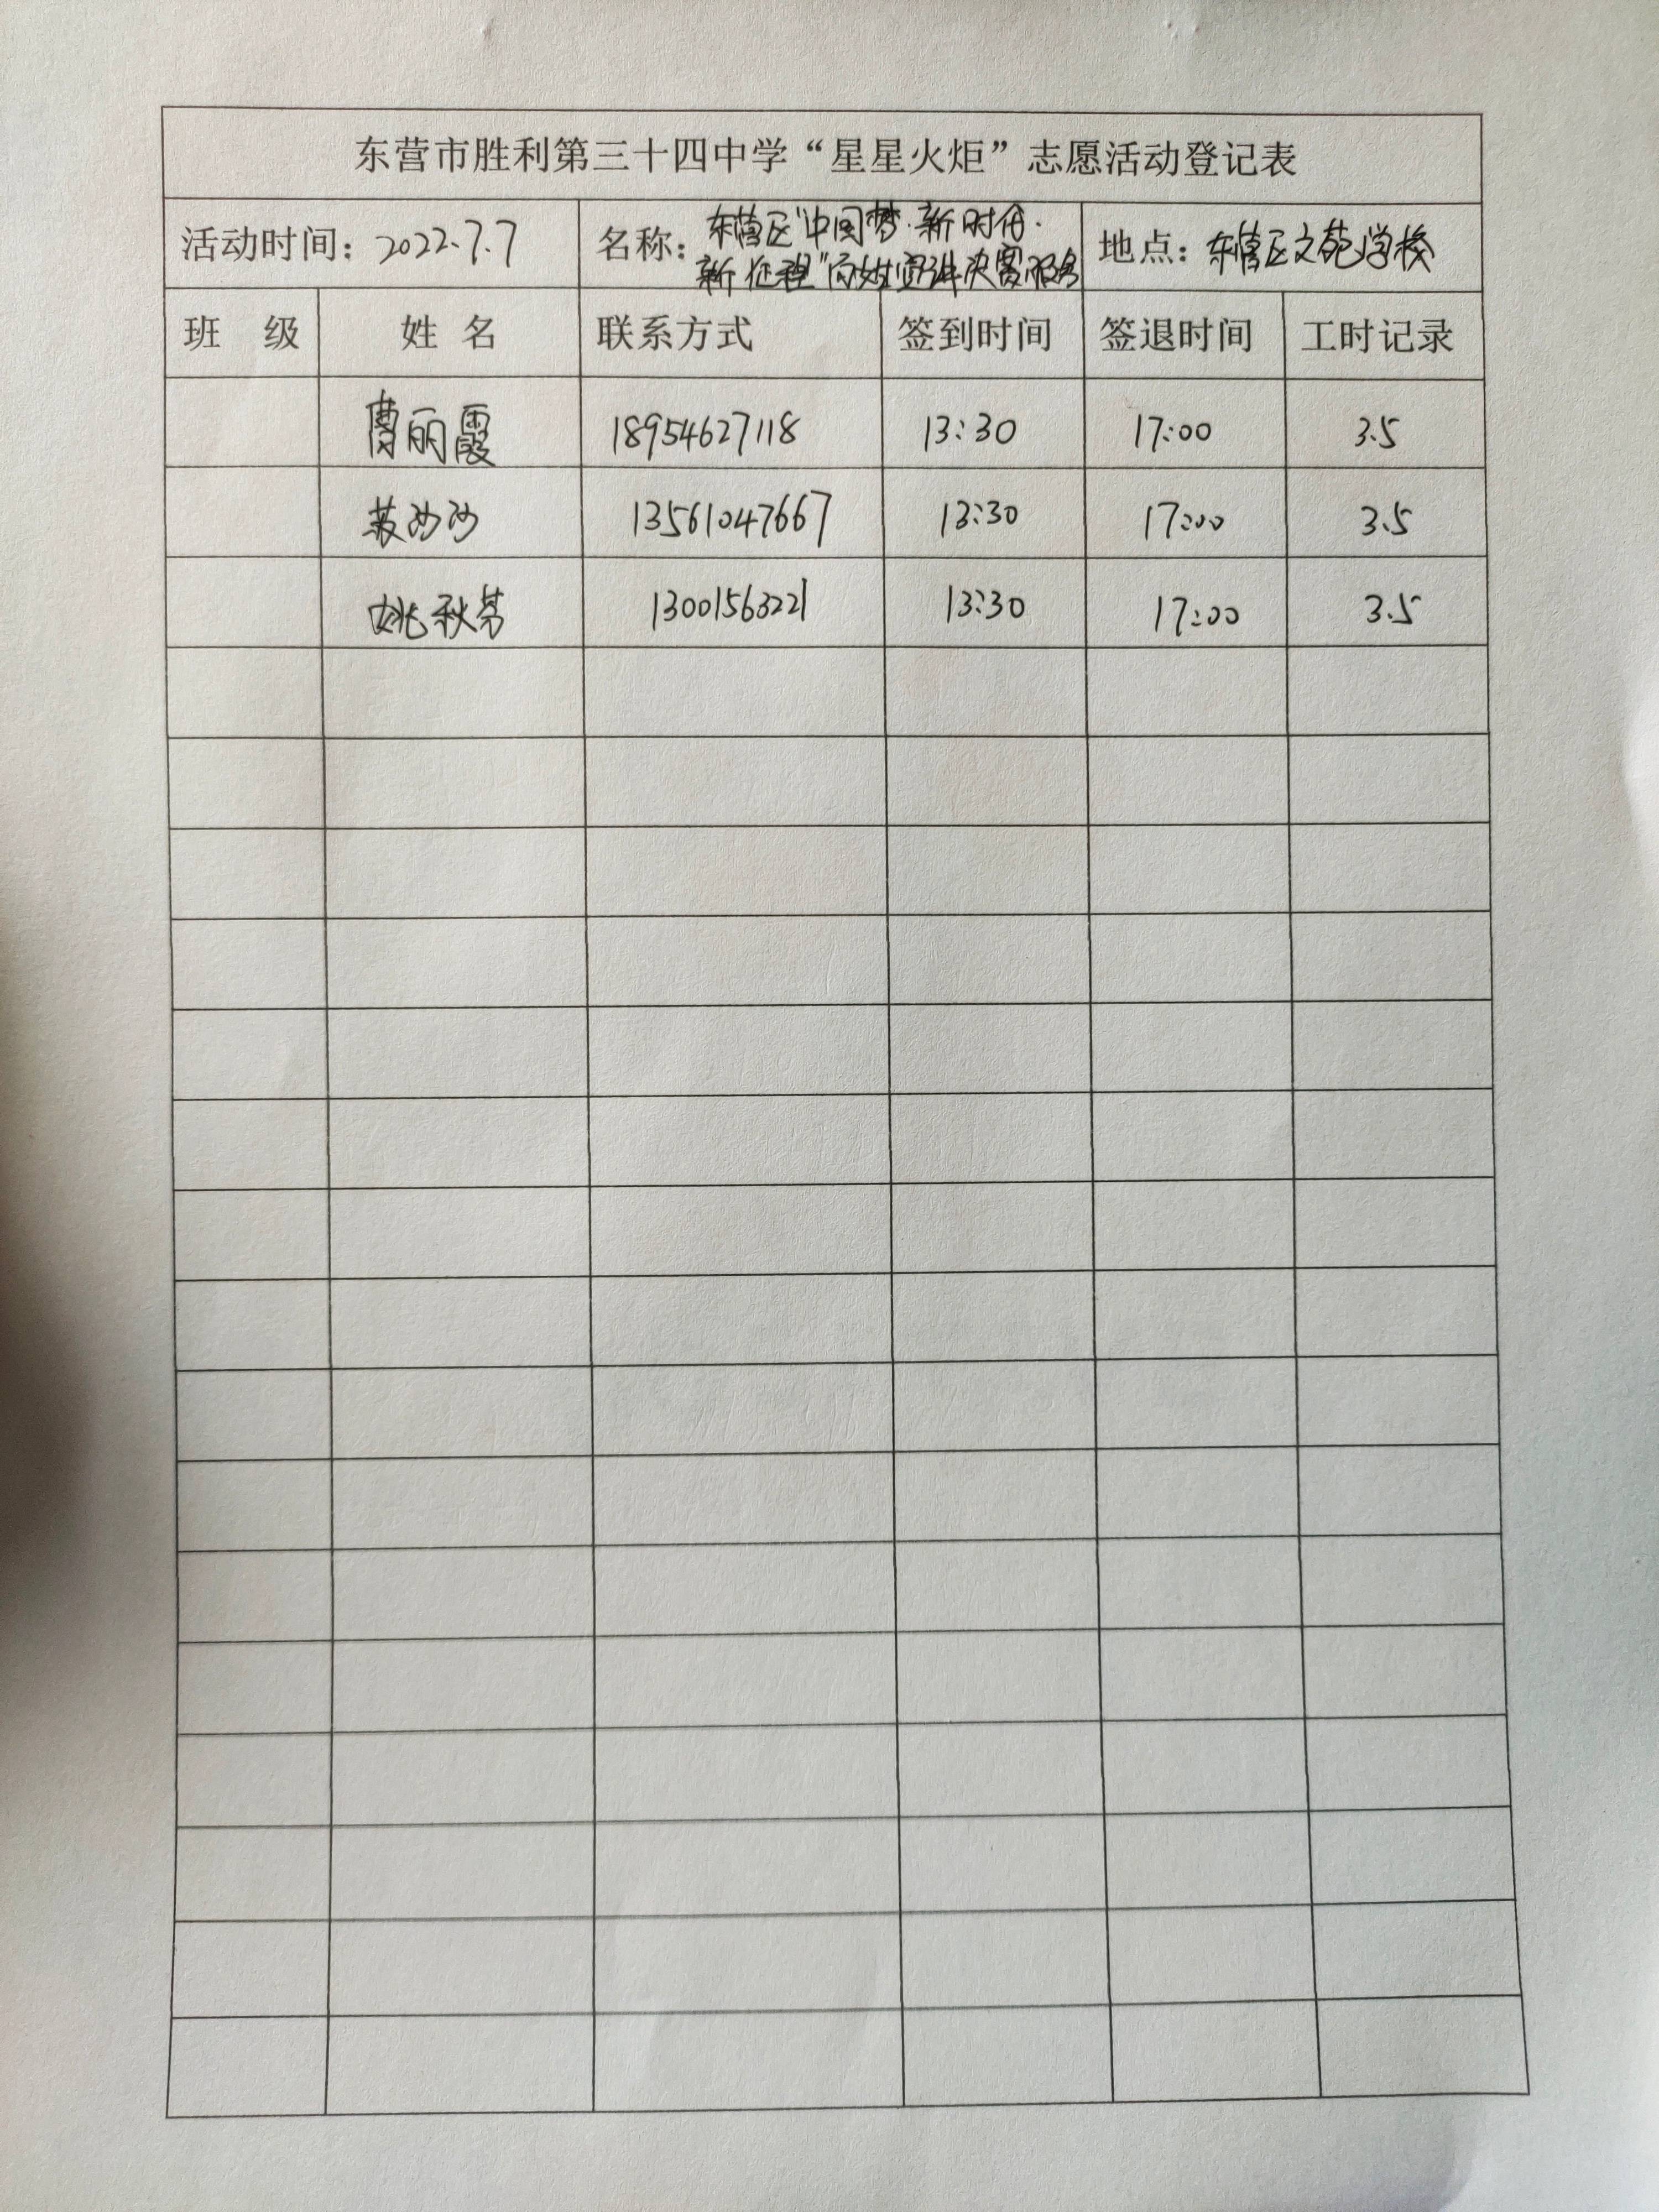 东营市胜利第三十四中学“星星火炬”志愿活动登记表
活动时间：2022.7.7 名称：东营区"中国梦·新时代· 地点：东营区文苑学校
新征程"百姓宣讲决赛服务
班 级 姓 名 联系方式 签到时间 签退时间 工时记录
曹丽霞 18954627118 13:30 17:00 3.5
苏沙沙 13561047667 13:30 17:00 3.5
姚秋芳 13001563221 13:30 17:00 3.5